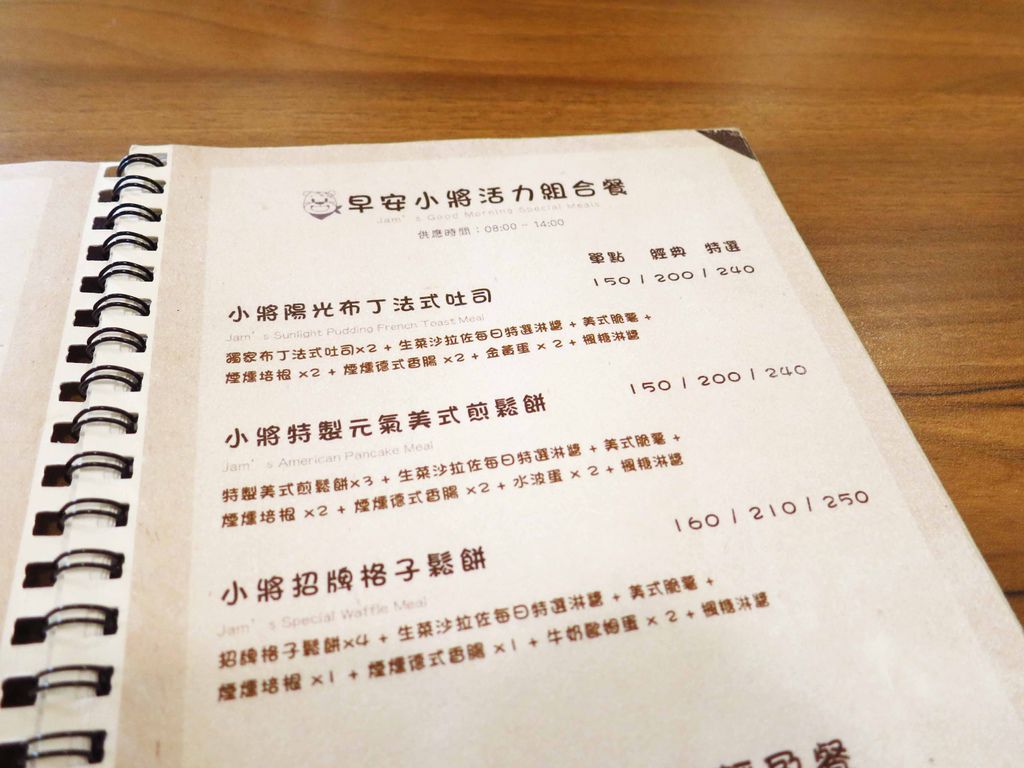 早安小將活力組合餐
Jam's Good Morning Special Meals
供應時間：08:00 - 14:00
單點 經典 特選
150 / 200 / 240
小將陽光布丁法式吐司
Jam's Sunlight Pudding French Toast Meal
獨家布丁法式吐司x2 + 生菜沙拉佐每日特選淋醬 + 美式脆薯 +
煙燻培根 x2 + 煙燻德式香腸 x2 + 金黃蛋 x 2 + 楓糖淋醬
150 / 200 / 240
小將特製元氣美式煎鬆餅
Jam's American Pancake Meal
特製美式煎鬆餅x3 + 生菜沙拉佐每日特選淋醬 + 美式脆薯 +
煙燻培根 x2 + 煙燻德式香腸 x2 + 水波蛋 x 2 + 楓糖淋醬
160 / 210 / 250
小將招牌格子鬆餅
Jam's Special Waffle Meal
招牌格子鬆餅x4 + 生菜沙拉佐每日特選淋醬 + 美式脆薯 +
煙燻培根 x1 + 煙燻德式香腸 x1 + 牛奶歐姆蛋 x 2 + 楓糖淋醬